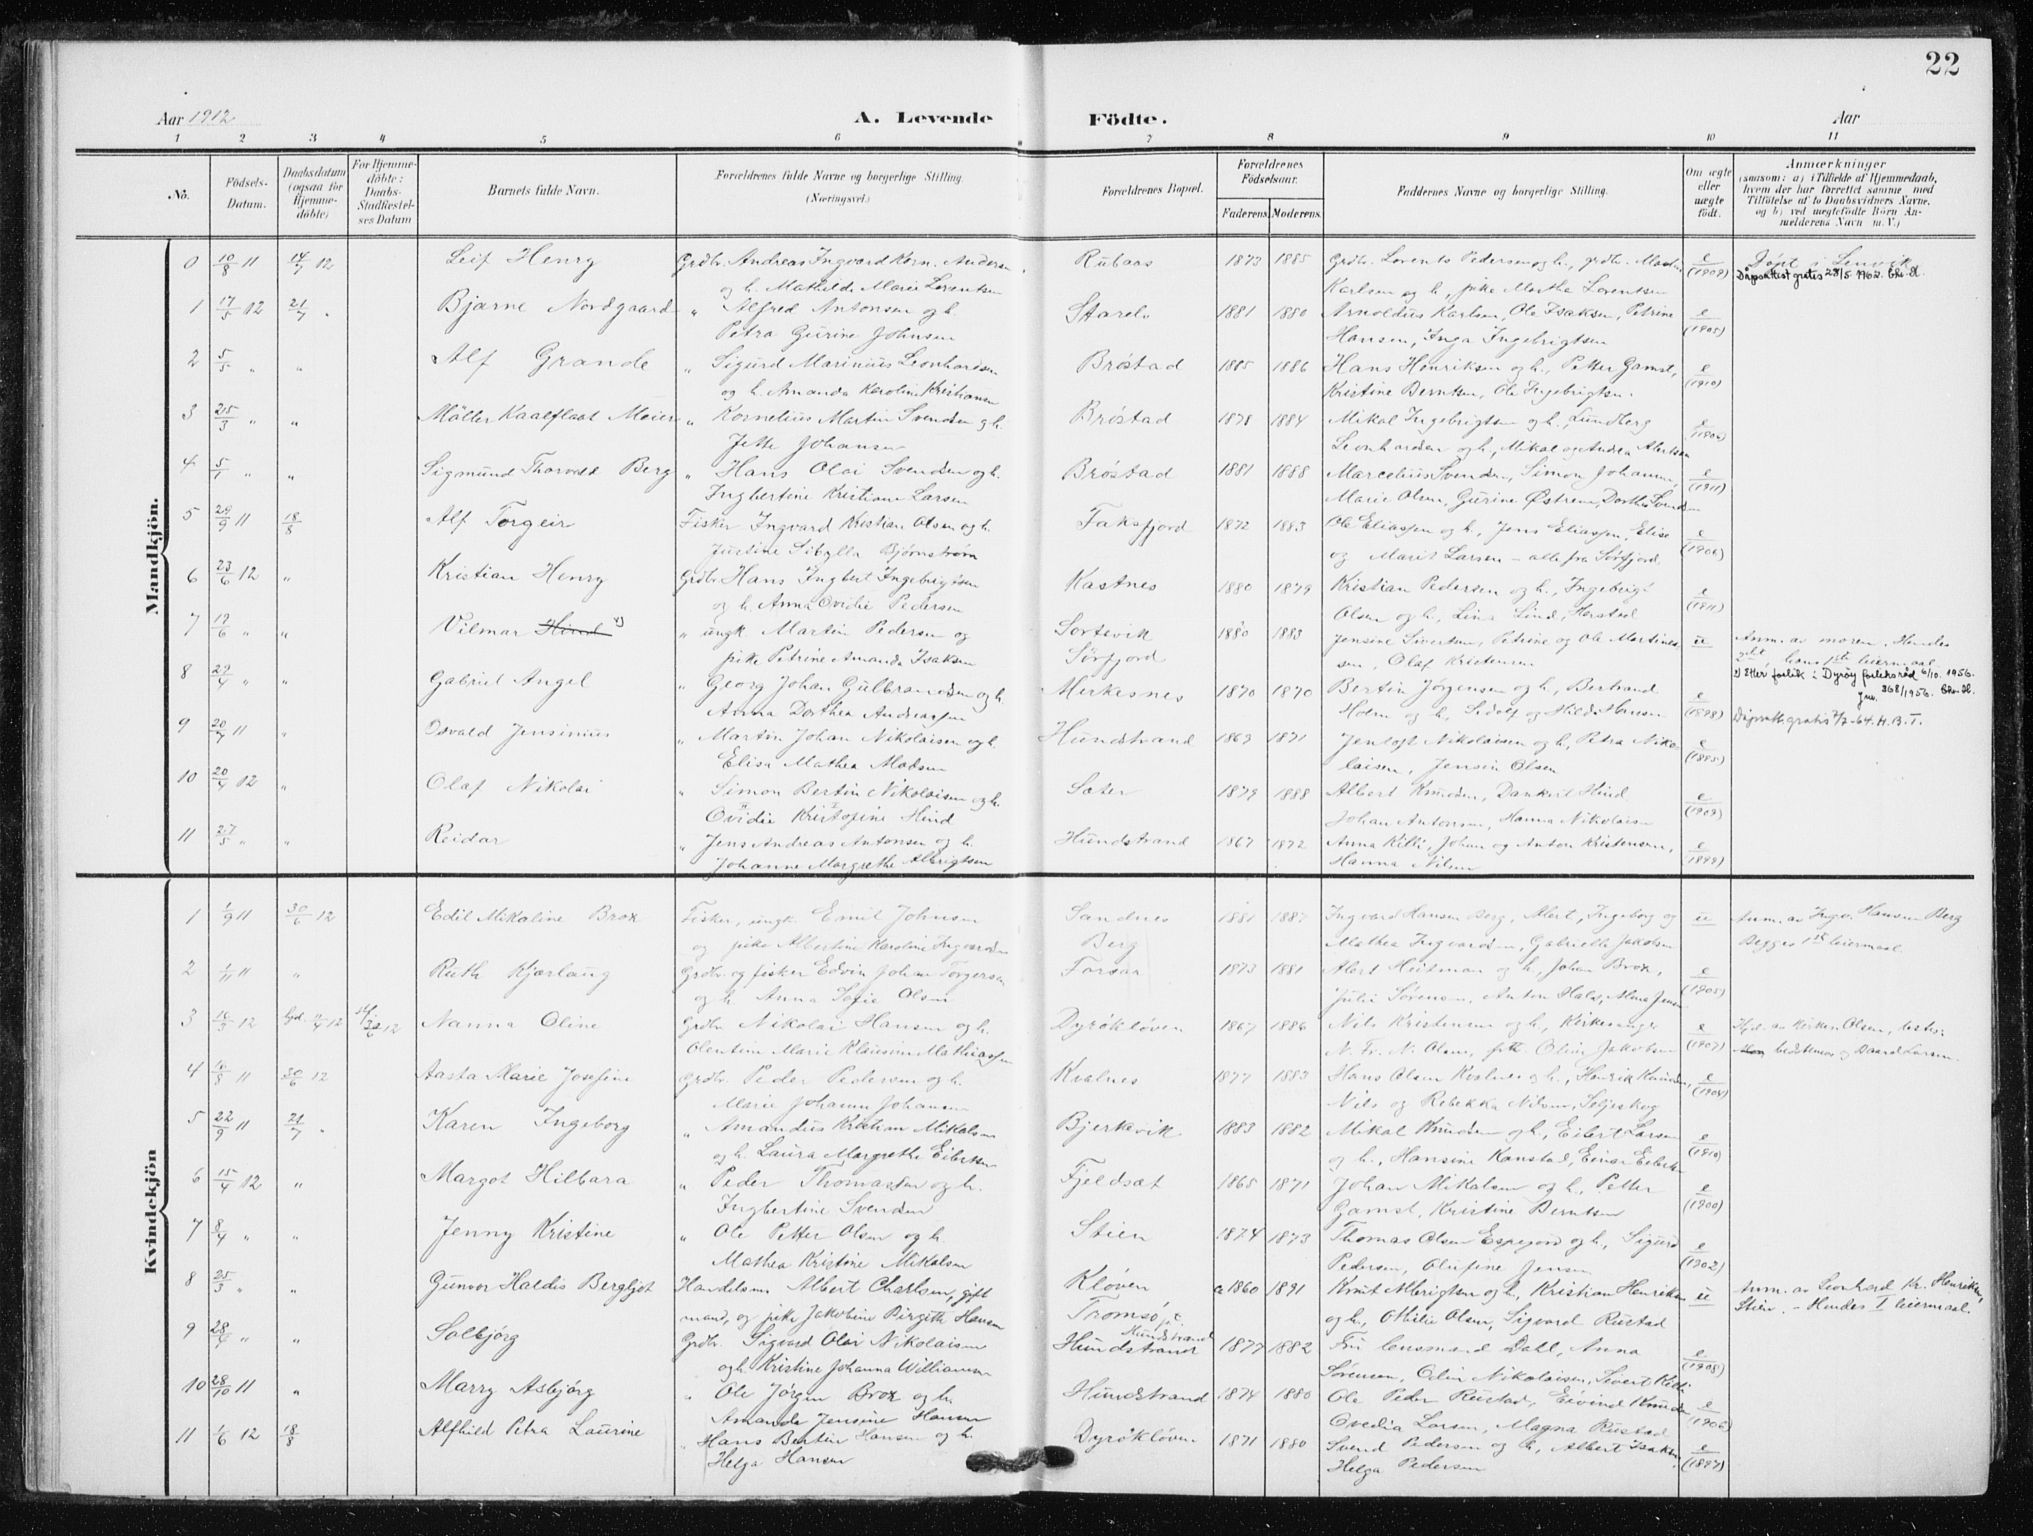 22
Aar 1912 A. Levende Födte. Aar
1 2 3 4 5 6 7 8 9 10 11
No. Födsels-Datum. Daabsdatum (ogsaa för Hjemme-döbte) For Hjemme-döbte: Daabs-Stadfæstel-ses Datum Barnets fulde Navn. Forældrenes fulde Navne og borgerlige Stilling. (Næringsvei.) Forældrenes Bopæl. Forældrenes Födselsaar. Faderens Moderens Faddernes Navne og borgerlige Stilling. Om ægte eller uægte födt. Anmærkninger (saasom: a) i Tilfælde af Hjemmedaab, hvem der har forrettet samme med Tilföielse af to Daabsvidners Navne. og b) ved uægtefödte Börn An-melderens Navn m. V.)
Mandkjön.
0 10/8 11 14/7 12 Leif Henry Grdbr. Andreas Ingvard Korn. Andersen Rubaas 1873 1885 Grdbr. Lorents Pedersen og h., grdbr. Martin e (1909) Døpt i Lenvik
og h. Mathilde Marie Lorentsen Karlsen og h., pike Martha Lorentsen Dåpsattest gratis 28/5 1962.
1 17/5 12 21/7 " Bjarne Nordgaard " Alfred Antonsen og h. 1881 1880 Arnoldus Karlsen, Ole Isaksen, Petrine e (1905)
Petra Gurine Johnsen Hansen, Inga Ingebrigtsen
2 5/5 " " Alf Grande " Sigurd Marinius Leonhardsen Brøstad 1885 1886 Hans Henriksen og h., Petter Gamst, e (1910)
og h. Amanda Karoline Kristiansen Kristine Berntsen, Ole Ingebrigtsen.
3 25/3 " " Möller Kaalflaat Meier " Kornelius Martin Svendsen og h. Brøstad 1878 1884 Mikal Ingebrigtsen og h., Lundberg e
Jette Johansen Leonhardsen og h., Mikal og Andrea Albertsen
4 5/1 " " Sigmund Thorvald Berg " Hans Olai Svendsen og h. Brøstad 1881 1888 Marcelius Svendsen, Simon Johansen, e (1911)
Ingbertine Kristiane Larsen Marie Olsen, Gurine Østrem, Dorthe Svendsen
5 29/9 11 18/8 Alf Torgeir Fisker Ingvard Kristian Olsen og h. Faksfjord 1872 1883 Ole Eliassen og h., Jens Eliassen, Elise e (1906)
Justine Sibylla Bjørnstrøm og Marit Larsen – alle fra Sørfjord
6 23/6 12 " Kristian Henry Grdbr Hans Ingbert Ingebrigtsen Kastnes 1880 1879 Kristian Pedersen og h., Ingebrigt e (1911)
og h. Anna Ovidie Pedersen Olsen og h., Lina Lind, Harstad
7 19/6 " " Vilmar Hind " ungk. Martin Pedersen og Sortevik 1880 1883 Jensine Sivertsen, Petrine og Ole Martines u Anm. av moren. Hendes
pike Petrine Amanda Isaksen Sørfjord sen, Olaf Kristensen hans 1ste leiermaal.
8 29/4 " " Gabriel Angel " Georg Johan Gulbrandsen og h. Merkesnes 1870 1870 Bertin Jørgensen og h., Bertrand e (1898) Etter forlik i Dyrøy forliksråd 6/10. 1956.
Anna Dorthea Andreassen Holm og h., Sedolf og Hilda Hansen Jnr. 868/1956.
9 20/7 11 " Osvald Jensinius " Martin Johan Nikolaisen og h. Hundstrand 1869 1871 Jentoft Nikolaisen og h., Petra Niko e (1895) Dåpsatt. gratis 2/2-64. H. B. T.
Elisa Mathea Madsen laisen, Jensin Olsen
10 20/4 12 " Olaf Nikolai " Simon Bertin Nikolaisen og h. Sæter 1879 1888 Albert Knudsen, Dankert Hind e (1909)
Ovidie Kristofine Hind Johan Antonsen, Hanna Nikolaisen
11 27/5 " " Reidar " Jens Andreas Antonsen og h. Hundstrand 1867 1872 Anna Killi, Johan og Anton Kristensen, e (1899)
Johanne Margrethe Albrigtsen Hanna Nilsen
Kvindekjön
1 1/9 11 30/6 12 Edil Mikaline Brox Fisker, ungk. Emil Johnsen Sandnes 1881 1887 Ingvard Hansen Berg, Albert, Ingeborg og u Anm. av Ingv. Hansen Berg
og pike Albertine Karoline Ingvardsen Berg Mathea Ingvardsen, Gabriella Jakobsen Begges 1ste leiermaal.
2 1/11 11 " Ruth Kjærlaug Grdbr. og fisker Edvin Johan Torgersen Forsør 1873 1881 Albert Heitman og h., Johan Brox, e (1905)
og h. Anna Sofie Olsen Julie Sørensen, Anton Hals, Alma Jensen
3 10/3 12 12 Nanna Oline Grdbr. Nikolai Hansen og h. Dyrøkløven 1867 1886 Nils Kristensen og h., Kirkesanger e (1907) Hjd. av kirken Olsen, testes:
Olentine Marie Klausine Mathiassen N. Fr. N. Olsen, Olin Jakobsen bedstemor og Daard Larsen.
4 10/8 11 30/6 12 Aasta Marie Josefine Grdbr. Peder Pedersen og h. Kvalnes 1877 1883 Hans Olsen Kvalnes og h., Henrik Knudsen, e (1904)
Marie Johanne Johansen Nils og Rebekka Nilsen, Seljeskog
5 22/9 11 21/7 " Karen Ingeborg " Amandus Kristian Mikalsen Bjerkevik 1883 1882 Mikal Knudsen og h., Eibert Larsen e (1910)
og h. Laura Margrethe Eibertsen og h., Hansine Kanstad, Einar Eibertsen
6 15/4 12 " Margot Hilbara " Peder Thomassen og h. Fjeldsæt 1865 1871 Johan Mikalsen og h., Petter e (1900)
Ingbertine Svendsen Gamst, Kristine Berntsen
7 8/4 " " Jenny Kristine " Ole Petter Olsen og h. Stien 1874 1873 Thomas Olsen Espejord og h., Sigurd e (1902)
Mathea Kristine Mikalsen Pedersen, Olufine Jensen
8 25/3 " " Gunvor Haldis Bergljot Handelsm. Albert Charlsen, gift Kløven 1860 1891 Knut Albrigtsen og h., Kristian Henriksen u Anm. av Leonhard Kr. Henriksen,
mand, og pike Jakobine Birgith Hansen Tromsø, pt. Hundstrand og h., Othilie Olsen, Sigvard Rustad Stien. – Hendes I leiermaal.
9 28/4 " " Solbjørg Grdbr. Sigvard Olai Nikolaisen Hundstrand 1877 1882 Fru lensmand Dahl, Anna e (1908)
og h. Kristine Johanna Williamsen Sørensen, Odin Nikolaisen, Sivert Killi
10 28/10 11 " Marry Asbjørg " Ole Jørgen Brox og h. Hundstrand 1874 1880 Ole Peder Rustad, Eivind Knudsen e (1906)
Amanda Jensine Hansen Ovedia Larsen, Magna Rustad
11 1/6 12 18/8 Alfhild Petra Laurine " Hans Bertin Hansen og h. Dyrøkløven 1871 1880 Svend Pedersen og h., Albert Isaksen, e (1897)
Helga Hansen Helga Pedersen